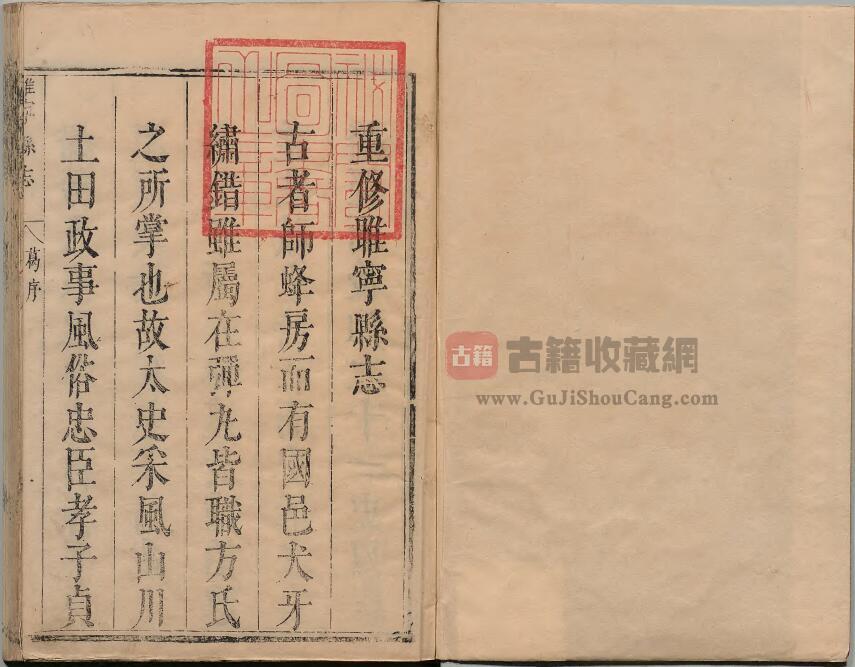 重修睢寧縣志
古者師蜂房而有國邑犬牙
繡錯雖屬在彈丸皆職方氏
之所掌也故太史采風山川
土田政事風俗忠臣孝子貞
睢寧縣志
葛序
古籍
古籍收藏網
www.GuJiShouCang.com